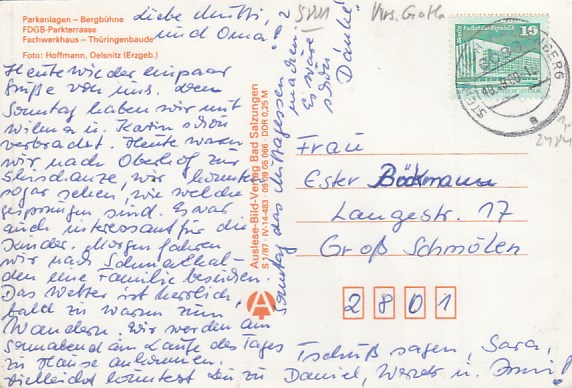 Parkanlagen – Bergbühne
FDGB-Parkterrasse
Fachwerkhaus – Thüringenbaude
Foto: Hoffmann, Oelsnitz (Erzgeb.)
Liebe Mutti,
und Oma!
Heute wieder ein paar
Grüße von uns. Den
Sonntag haben wir mit
Wilma u. Karin schön
verbracht. Heute waren
wir nach Oberhof zur
Skischanze, wir konnten
sogar sehen, wie welche
gesprungen sind. Es war
auch interessant für die
Kinder. Morgen fahren
wir nach Schmalkal-
den eine Familie besuchen.
Das Wetter ist herrlich,
bald zu warm zum
Wandern. Wir werden am
Sonnabend am Laufe des Tages
zu Hause ankommen.
Vielleicht könntest Du zu
Sonntag das Mittagessen
machen.
Es wäre
schön!
Danke!
Auslese-Bild-Verlag Bad Salzungen
S 1/87 · IV-14-483 · 09 09 05 066 · DDR 0,25 M
Krs.
10
DDR
Frau
Ester Böckmann
Langestr. 17
Groß Schmölen
2801
Tschüß sagen, Sara,
Daniel, Werner u.